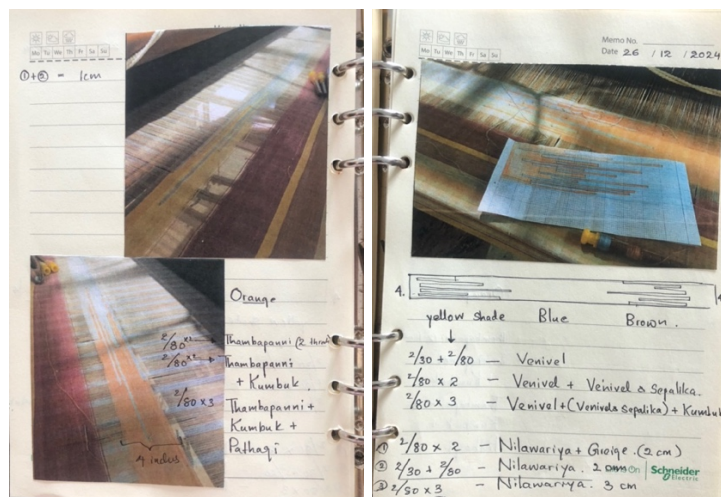 Mo Tu We Th Fr Sa Su
①+② = 1cm
Orange
2/80 x2 → Thambapanni (2 thread
2/80 x2 → Thambapanni
+ Kumbuk.
2/80 x3 Thambapanni +
Kumbuk +
Pathagi
4 inches
Mo Tu We Th Fr Sa Su
Memo No.
Date 26 / 12 / 2024
4.
yellow shade Blue Brown.
2/30 + 2/80 — Venivel
2/80 x 2 — Venivel + Venivel & Sepalika.
2/80 x 3 — Venivel+(Venivel & Sepalika)+ Kumbuk
① 2/80 x 2 — Nilawariya + (2 cm)
② 2/30 + 2/80 — Nilawariya. 2
③ 2/80 x 3 — Nilawariya. 3 cm
Life Is On Schneider
Electric